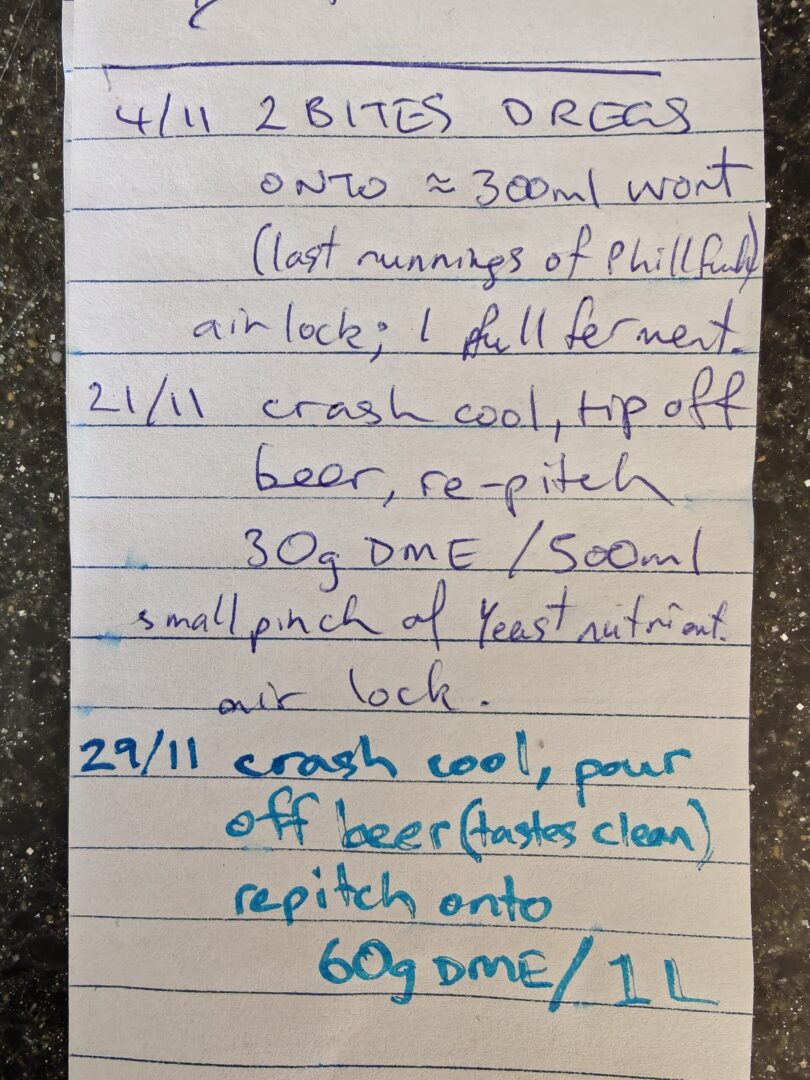 4/11 2 BITES DREGS
ONTO ≈ 300ml wort
(last runnings of Phill
air lock; full ferment.
21/11 crash cool, tip off
beer, re-pitch
30g DME /500ml
small pinch of Yeast nutrient.
air lock.
29/11 crash cool, pour
off beer (tastes clean)
repitch onto
60g DME/1L